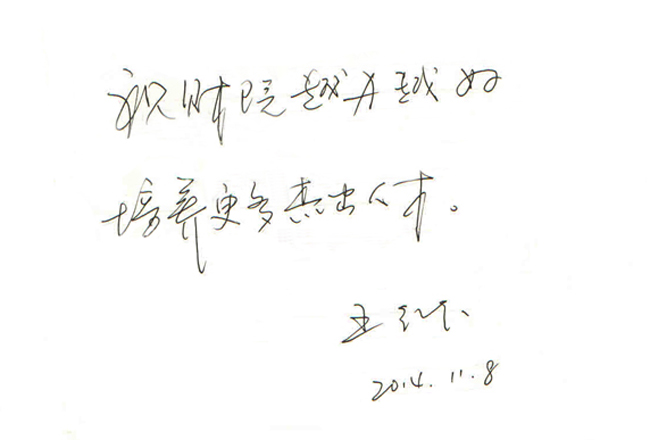 祝财院越办越好
培养更多杰出人才。
王
2014.11.8